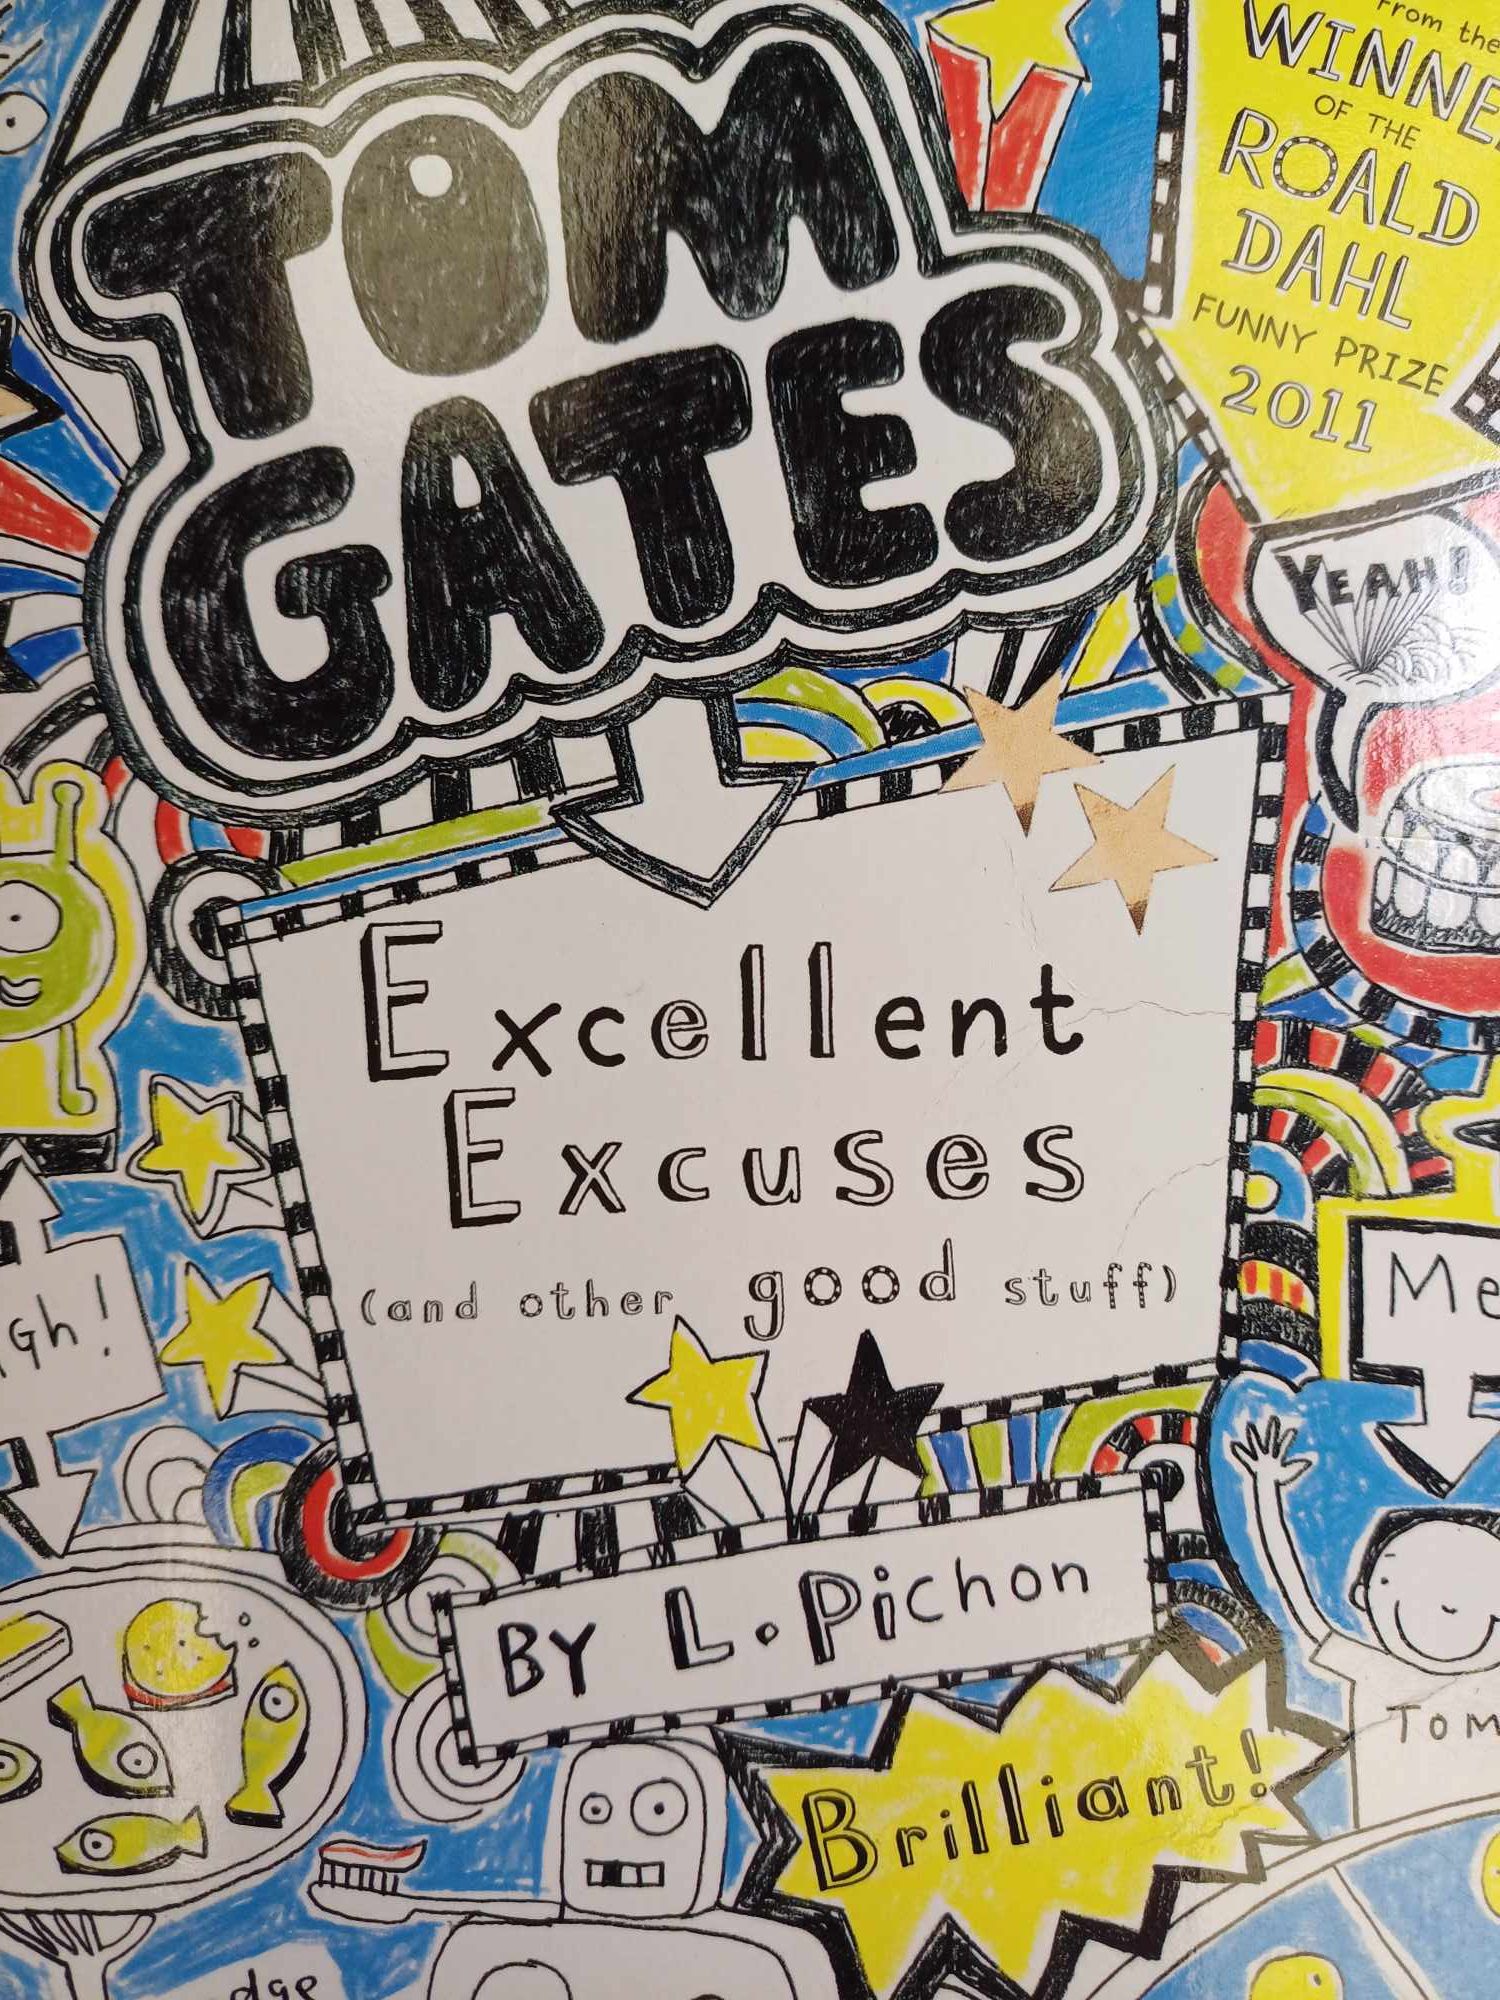 TOM
GATES
From the
WINNE
OF THE
ROALD
DAHL
FUNNY PRIZE
2011
YEAH!
Excellent
Excuses
(and other good stuff)
Gh!
Me
BY L. Pichon
TOM
Brilliant!
dge